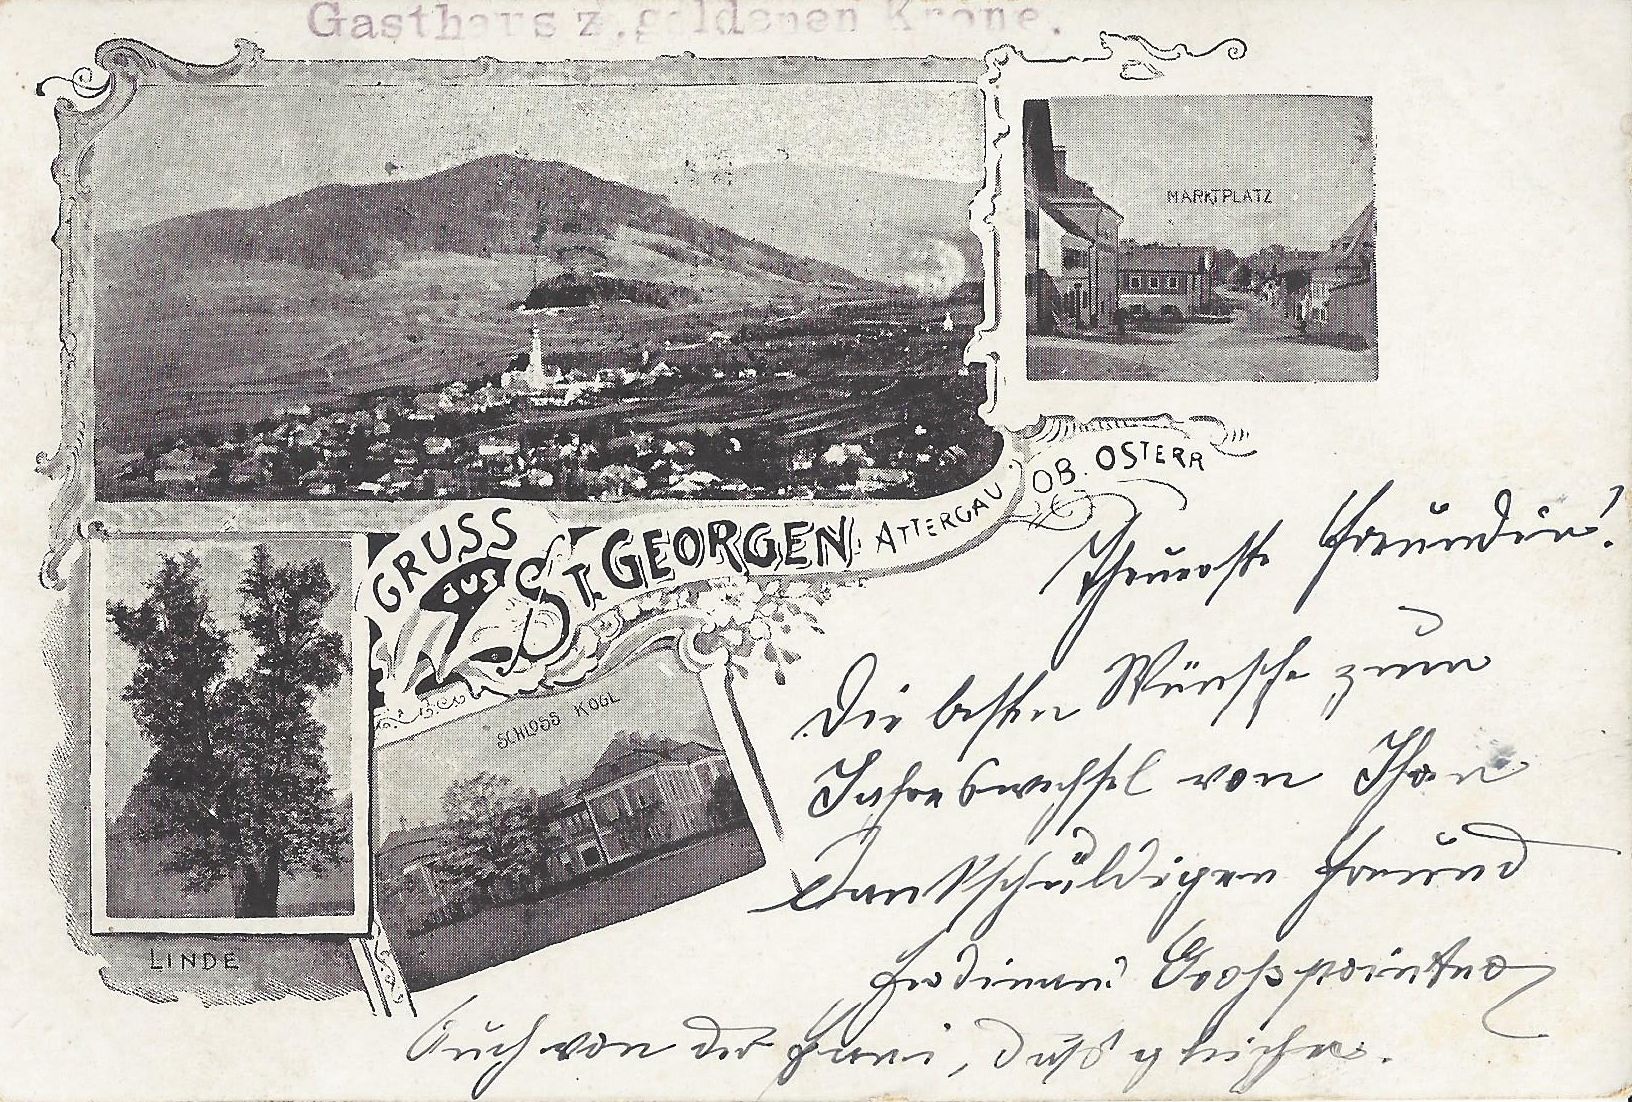 Gasthaus z. goldenen Krone.
MARKTPLATZ
GRUSS
AUS
ST. GEORGEN
ATTERGAU
OB. ÖSTERR
SCHLOSS KOGL
LINDE
Theuerste Freundin!
Die besten Wünsche zum
Jahreswechsel von Ihren
dankschuldigen Freund
Ferdinand
Auch von der